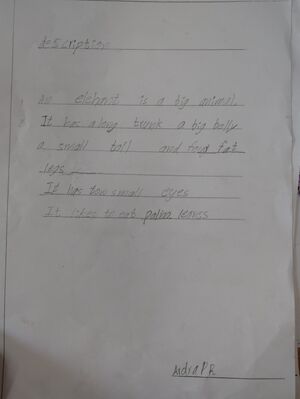 description
an elehant is a big animal.
It has along trunk a big belly
a small tail and four fat
legs
It has two small eyes
It likes to eat palm leaves
Aidia P.R